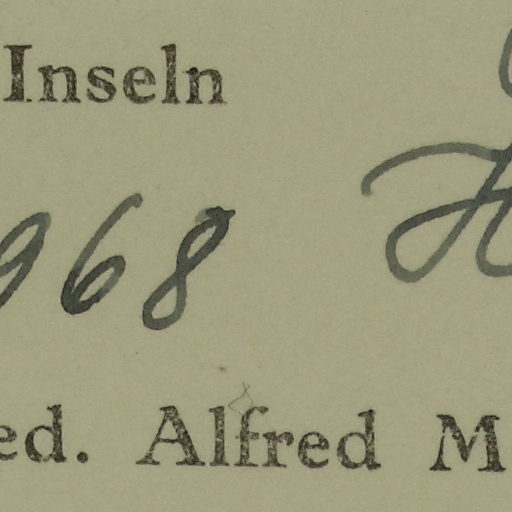 Inseln
968
ed. Alfred M